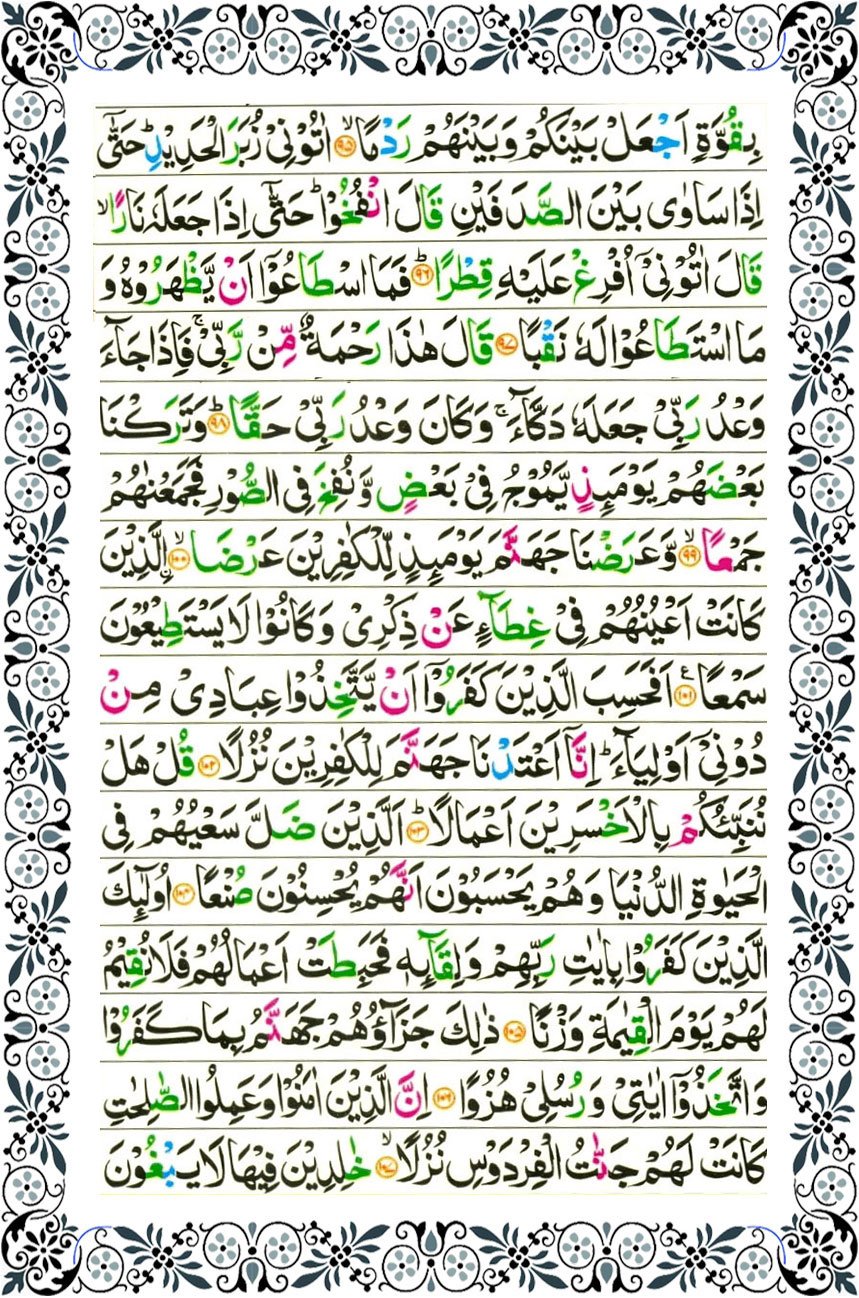 بِقُوَّةٍ اَجْعَلْ بَيْنَكُمْ وَبَيْنَهُمْ رَدْمًا ۙ‏﴿۹۵﴾ اٰتُوْنِىْ زُبَرَ الْحَدِيْدِ ؕ حَتّٰٓى
اِذَا سَاوٰى بَيْنَ الصَّدَفَيْنِ قَالَ انْفُخُوْا ؕ حَتّٰٓى اِذَا جَعَلَهٗ نَارًا ۙ
قَالَ اٰتُوْنِىْۤ اُفْرِغْ عَلَيْهِ قِطْرًا ؕ‏﴿۹۶﴾ فَمَا اسْطَاعُوْۤا اَنْ يَّظْهَرُوْهُ وَ
مَا اسْتَطَاعُوْا لَهٗ نَقْبًا‏﴿۹۷﴾ قَالَ هٰذَا رَحْمَةٌ مِّنْ رَّبِّىْ ۚ فَاِذَا جَآءَ
وَعْدُ رَبِّىْ جَعَلَهٗ دَكَّآءَ ۚ وَكَانَ وَعْدُ رَبِّىْ حَقًّا ؕ‏﴿۹۸﴾ وَتَرَكْنَا
بَعْضَهُمْ يَوْمَئِذٍ يَّمُوْجُ فِىْ بَعْضٍ وَّنُفِخَ فِى الصُّوْرِ فَجَمَعْنٰهُمْ
جَمْعًا ۙ‏﴿۹۹﴾ وَّعَرَضْنَا جَهَنَّمَ يَوْمَئِذٍ لِّلْكٰفِرِيْنَ عَرْضَا‏﴿۱۰۰﴾ ۨالَّذِيْنَ
كَانَتْ اَعْيُنُهُمْ فِىْ غِطَآءٍ عَنْ ذِكْرِىْ وَكَانُوْا لَا يَسْتَطِيْعُوْنَ
سَمْعًا‏﴿۱۰۱﴾ اَفَحَسِبَ الَّذِيْنَ كَفَرُوْۤا اَنْ يَّتَّخِذُوْا عِبَادِىْ مِنْ
دُوْنِىْۤ اَوْلِيَآءَ ؕ اِنَّاۤ اَعْتَدْنَا جَهَنَّمَ لِلْكٰفِرِيْنَ نُزُلًا‏﴿۱۰۲﴾ قُلْ هَلْ
نُنَبِّئُكُمْ بِالْاَخْسَرِيْنَ اَعْمَالًا ؕ‏﴿۱۰۳﴾ اَلَّذِيْنَ ضَلَّ سَعْيُهُمْ فِى
الْحَيٰوةِ الدُّنْيَا وَهُمْ يَحْسَبُوْنَ اَنَّهُمْ يُحْسِنُوْنَ صُنْعًا‏﴿۱۰۴﴾ اُولٰٓئِكَ
الَّذِيْنَ كَفَرُوْا بِاٰيٰتِ رَبِّهِمْ وَلِقَآئِهٖ فَحَبِطَتْ اَعْمَالُهُمْ فَلَا نُقِيْمُ
لَهُمْ يَوْمَ الْقِيٰمَةِ وَزْنًا‏﴿۱۰۵﴾ ذٰلِكَ جَزَآؤُهُمْ جَهَنَّمُ بِمَا كَفَرُوْا
وَاتَّخَذُوْۤا اٰيٰتِىْ وَرُسُلِىْ هُزُوًا‏﴿۱۰۶﴾ اِنَّ الَّذِيْنَ اٰمَنُوْا وَعَمِلُوا الصّٰلِحٰتِ
كَانَتْ لَهُمْ جَنّٰتُ الْفِرْدَوْسِ نُزُلًا ۙ‏﴿۱۰۷﴾ خٰلِدِيْنَ فِيْهَا لَا يَبْغُوْنَ